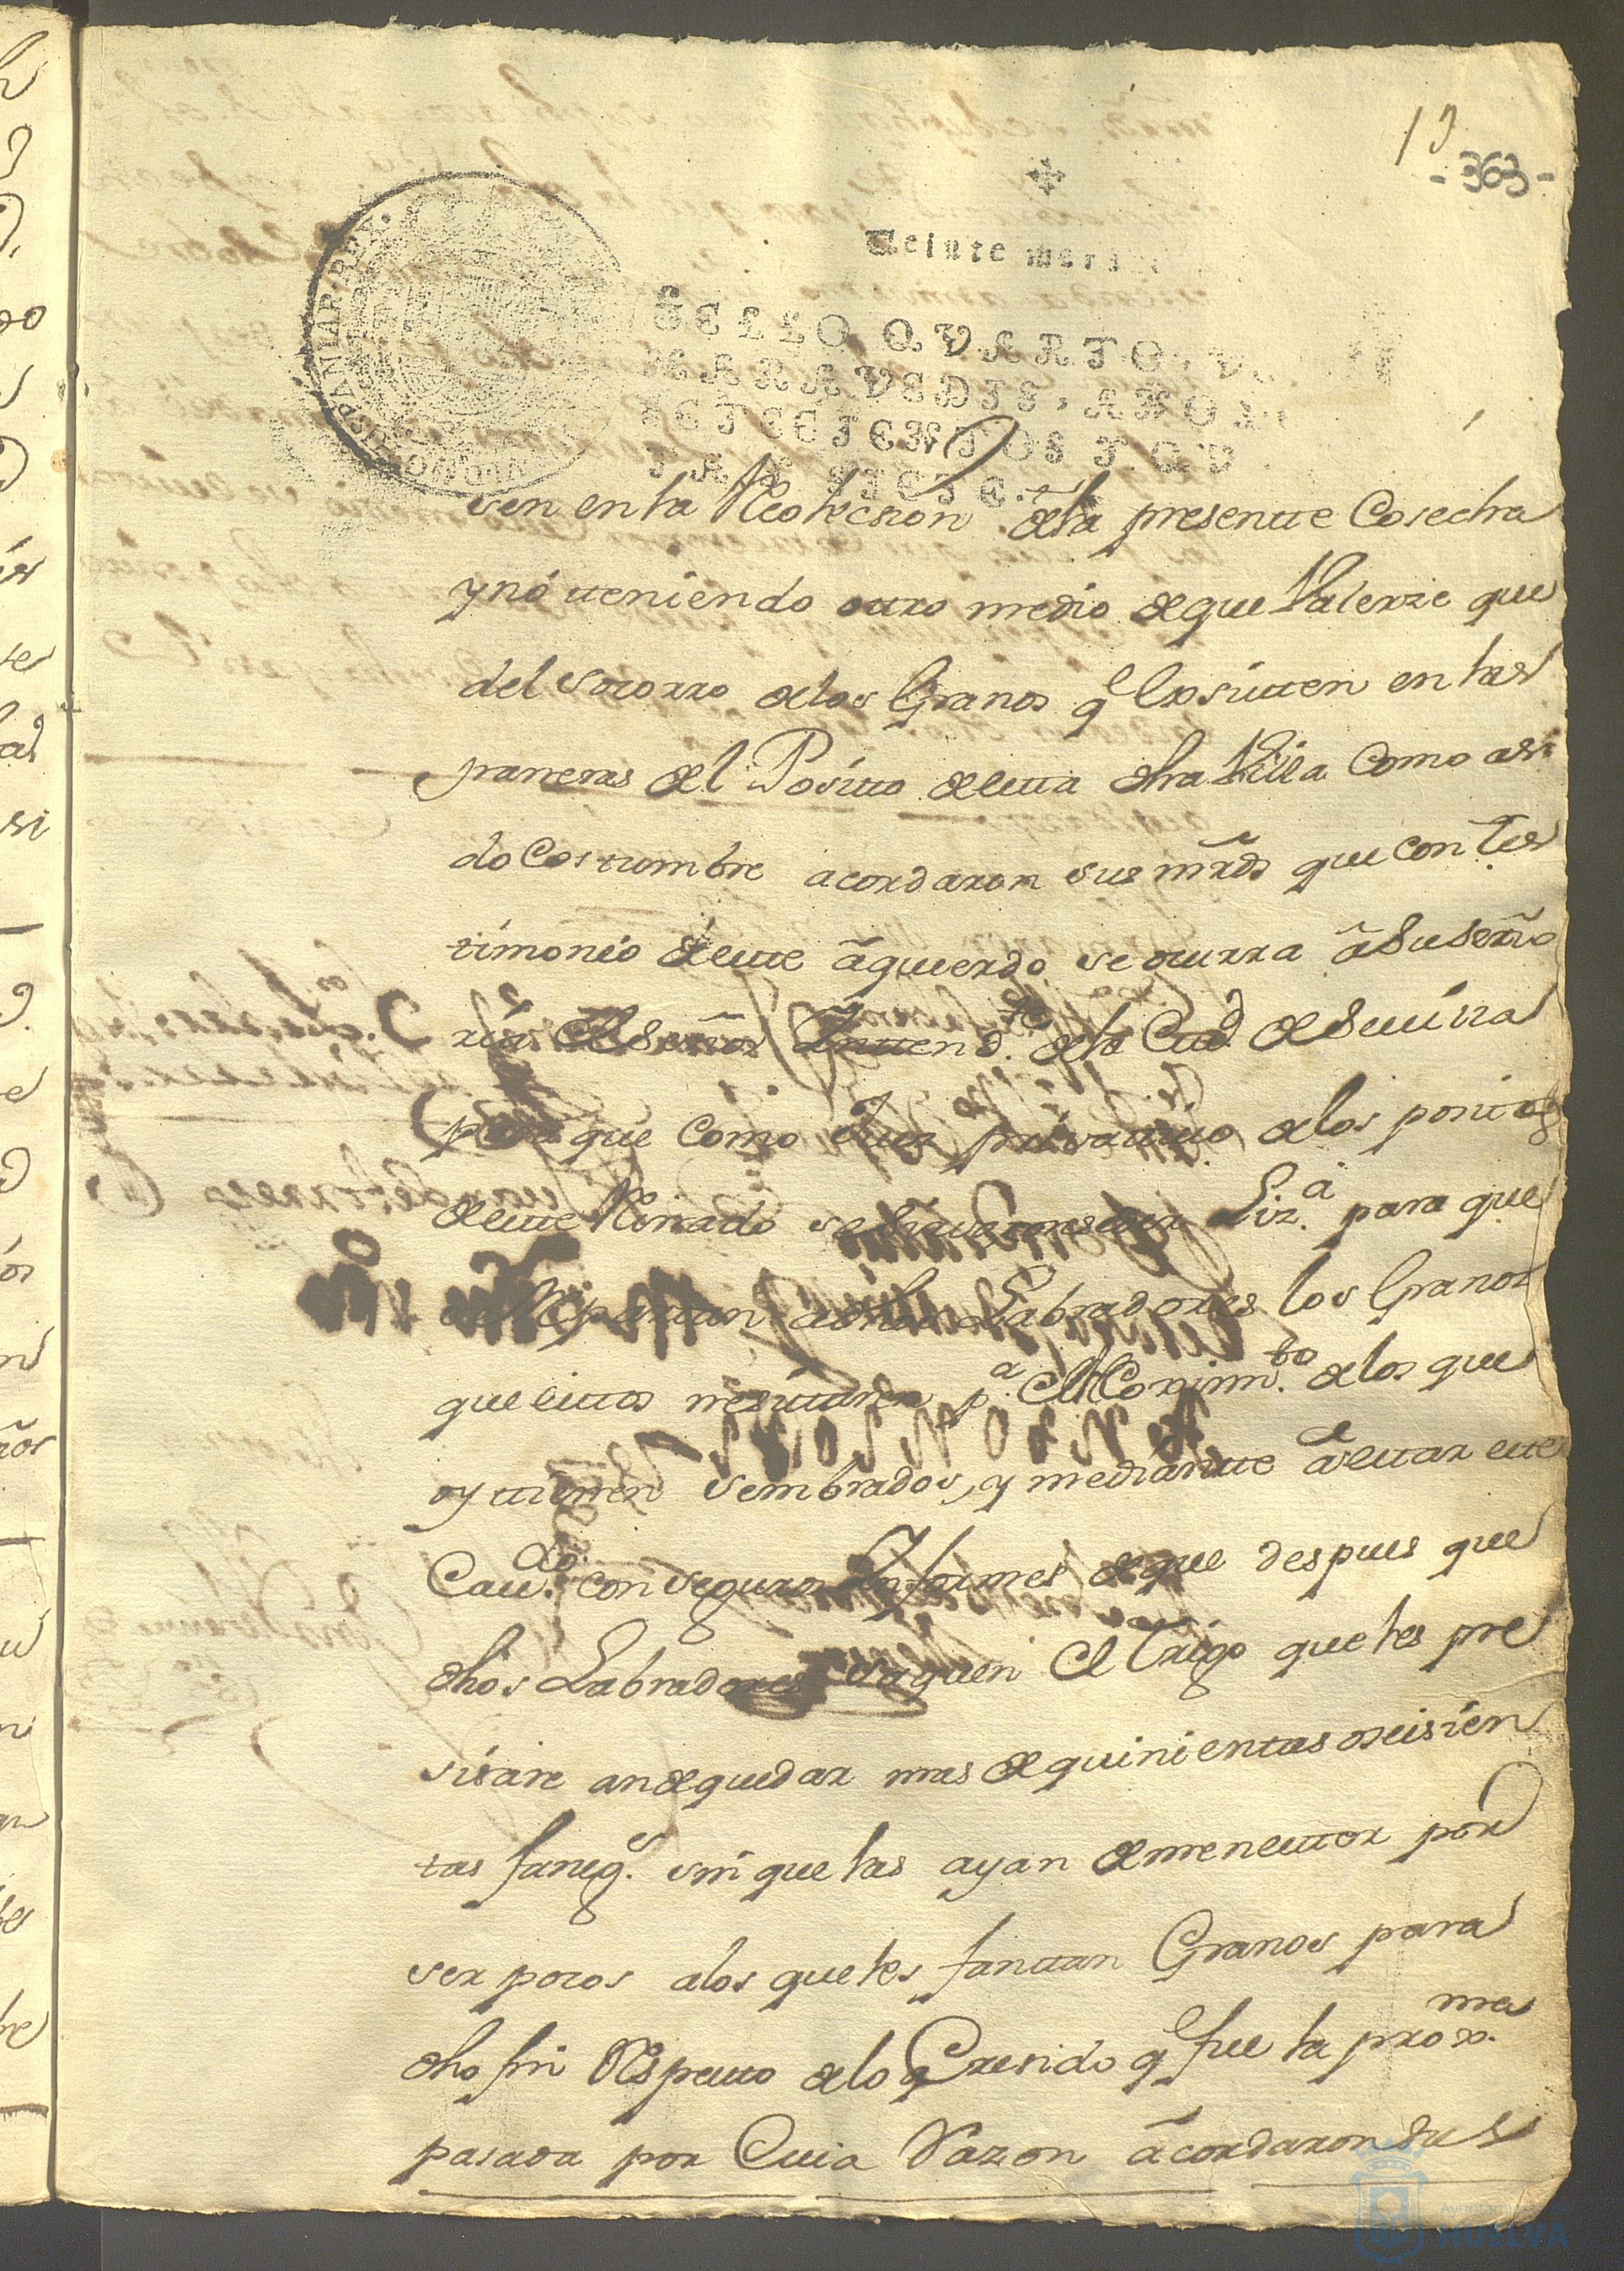 13
- 363 -
Veinte mara
SELLO QVARTO, V
MARAVEDIS, AÑO
SETECIENTOS Y QV
Y SIETE.
HISPANIAR·REX
sen en la Recolecsion dela presentte Cosecha
y no tteniendo otro medio deque Valerze que
del socorro delos Granos q.e Exsistten en las
paneras del Positto deesta dha Villa como asi
do Costumbre acordaron sus mrds que con tes
timonio deeste aquerdo se ocurra a Su Seño
ria el Señor Yntend.te dela Ciud. de Sevilla
para que como Juez privatibo delos positos
deeste Reinado se sirva conseder Liz.a para que
se Repartan a dhos Labradores los Granos
que estos nesesitaren p.a el Coximm.to delos que
oy tienen sembrados, y mediante a estar este
Cav.do con seguros Ynformes deque despues que
dhos Labradores saquen el trigo que les pre
sisare an de quedar mas de quinientas o seisien
tas faneg.s sin que las ayan de menester por
ser pocos a los que les faltan Granos para
dho fin Respecto a lo Cresido q.e fue la prox.ma
pasada por Cuia Razon acordaron sus
Ayuntamiento
HUELVA